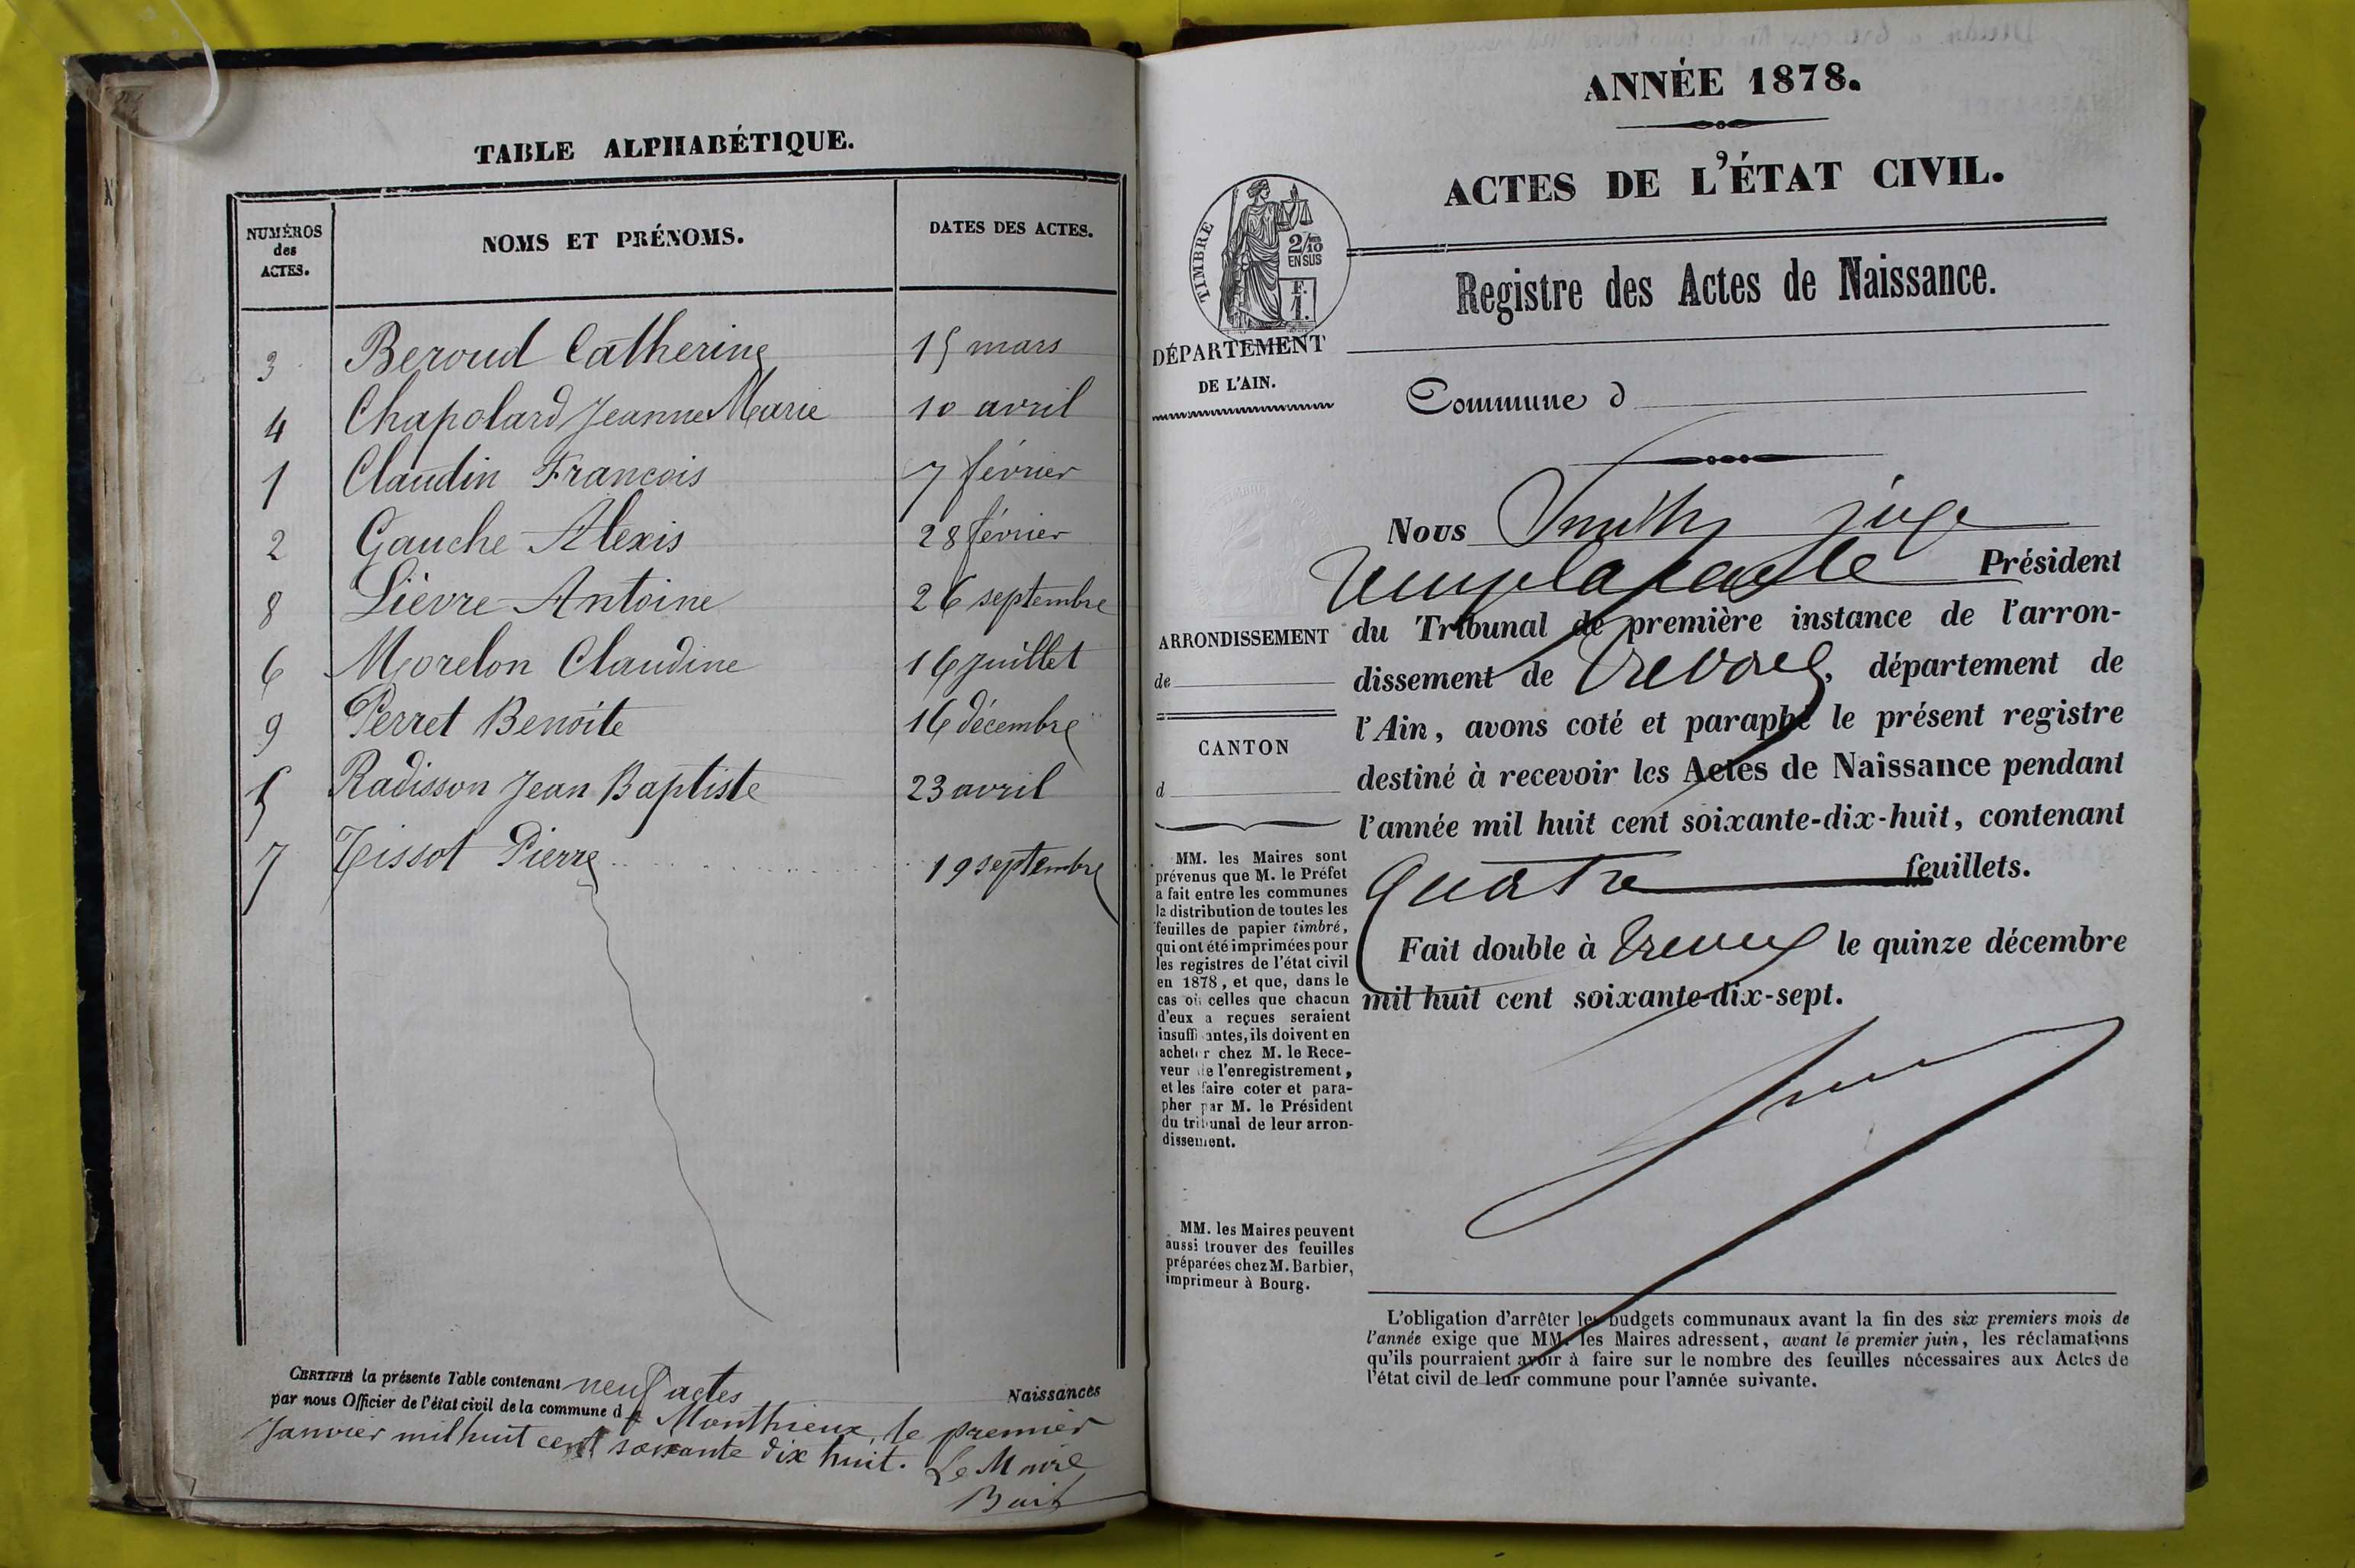 TABLE ALPHABÉTIQUE.
NUMÉROS des ACTES.
NOMS ET PRÉNOMS.
DATES DES ACTES.
3 Beroud Catherine 15 mars
4 Chapolard Jeanne Marie 10 avril
1 Claudin Francois 7 février
2 Gauche Alexis 28 février
8 Lièvre Antoine 26 septembre
6 Morelon Claudine 16 juillet
9 Perret Benoite 16 décembre
5 Radisson Jean Baptiste 23 avril
7 Tissot Pierre 19 septembre
CERTIFIÉ la présente Table contenant neuf actes Naissances
par nous Officier de l'état civil de la commune de Monthieux, le premier
Janvier mil huit cent soixante dix huit. Le Maire
ANNÉE 1878.
ACTES DE L'ÉTAT CIVIL.
TIMBRE
2/10
EN SUS
F.
1.
Registre des Actes de Naissance.
DÉPARTEMENT
DE L'AIN.
Commune d
Nous Smith juge
Président
ARRONDISSEMENT
de
CANTON
d
du Tribunal de première instance de l'arron-
dissement de Trévoux, département de
l'Ain, avons coté et paraphé le présent registre
destiné à recevoir les Actes de Naissance pendant
l'année mil huit cent soixante-dix-huit, contenant
quatre feuillets.
Fait double à Trévoux le quinze décembre
mil huit cent soixante-dix-sept.
MM. les Maires sont
prévenus que M. le Préfet
a fait entre les communes
la distribution de toutes les
feuilles de papier timbré,
qui ont été imprimées pour
les registres de l'état civil
en 1878, et que, dans le
cas où celles que chacun
d'eux a reçues seraient
insuffisantes, ils doivent en
acheter chez M. le Rece-
veur de l'enregistrement,
et les faire coter et para-
pher par M. le Président
du tribunal de leur arron-
dissement.
MM. les Maires peuvent
aussi trouver des feuilles
préparées chez M. Barbier,
imprimeur à Bourg.
L'obligation d'arrêter les budgets communaux avant la fin des six premiers mois de
l'année exige que MM. les Maires adressent, avant le premier juin, les réclamations
qu'ils pourraient avoir à faire sur le nombre des feuilles nécessaires aux Actes de
l'état civil de leur commune pour l'année suivante.